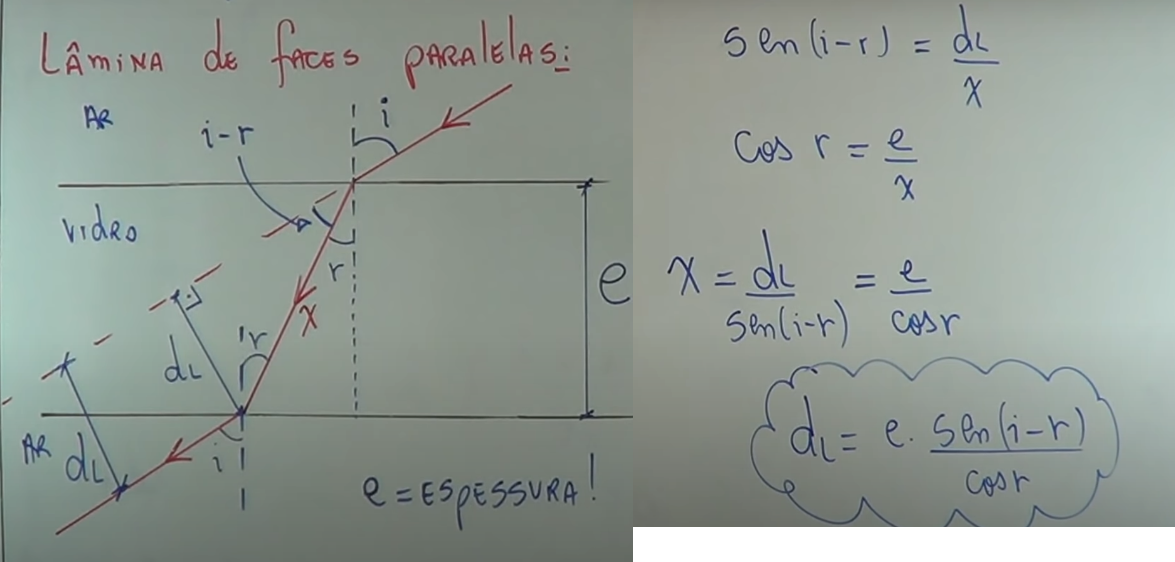 Lâmina de faces paralelas:
AR
i
i-r
Vidro
r
e
x
r
dL
AR
dL
i
e = ESPESSURA!
Sen(i-r) = dL/x
Cos r = e/x
x = dL/sen(i-r) = e/cosr
dL = e. sen(i-r)/cosr